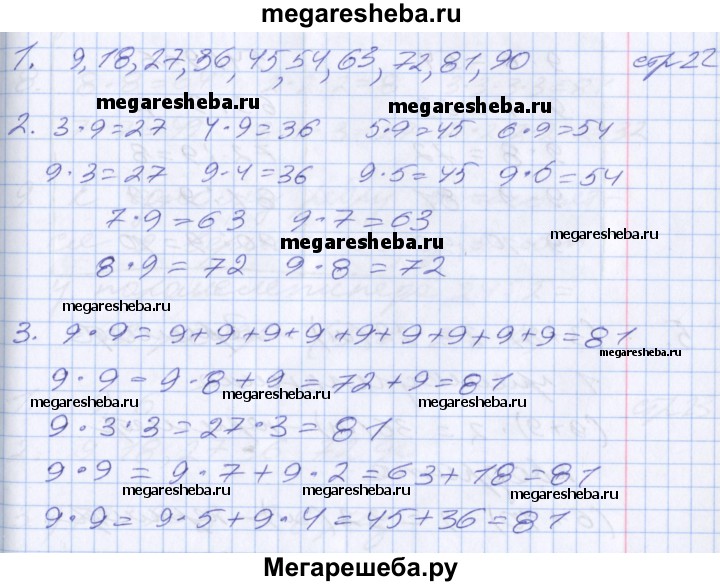 megaresheba.ru
1. 9, 18, 27, 36, 45, 54, 63, 72, 81, 90 стр 22
megaresheba.ru megaresheba.ru
2. 3·9=27 4·9=36 5·9=45 6·9=54
9·3=27 9·4=36 9·5=45 9·6=54
7·9=63 9·7=63
megaresheba.ru
8·9=72 9·8=72
megaresheba.ru megaresheba.ru
3. 9·9=9+9+9+9+9+9+9+9+9=81
megaresheba.ru
9·9=9·8+9=72+9=81
megaresheba.ru megaresheba.ru megaresheba.ru
9·3·3=27·3=81
9·9=9·7+9·2=63+18=81
megaresheba.ru megaresheba.ru
9·9=9·5+9·4=45+36=81
Мегарешеба.ру